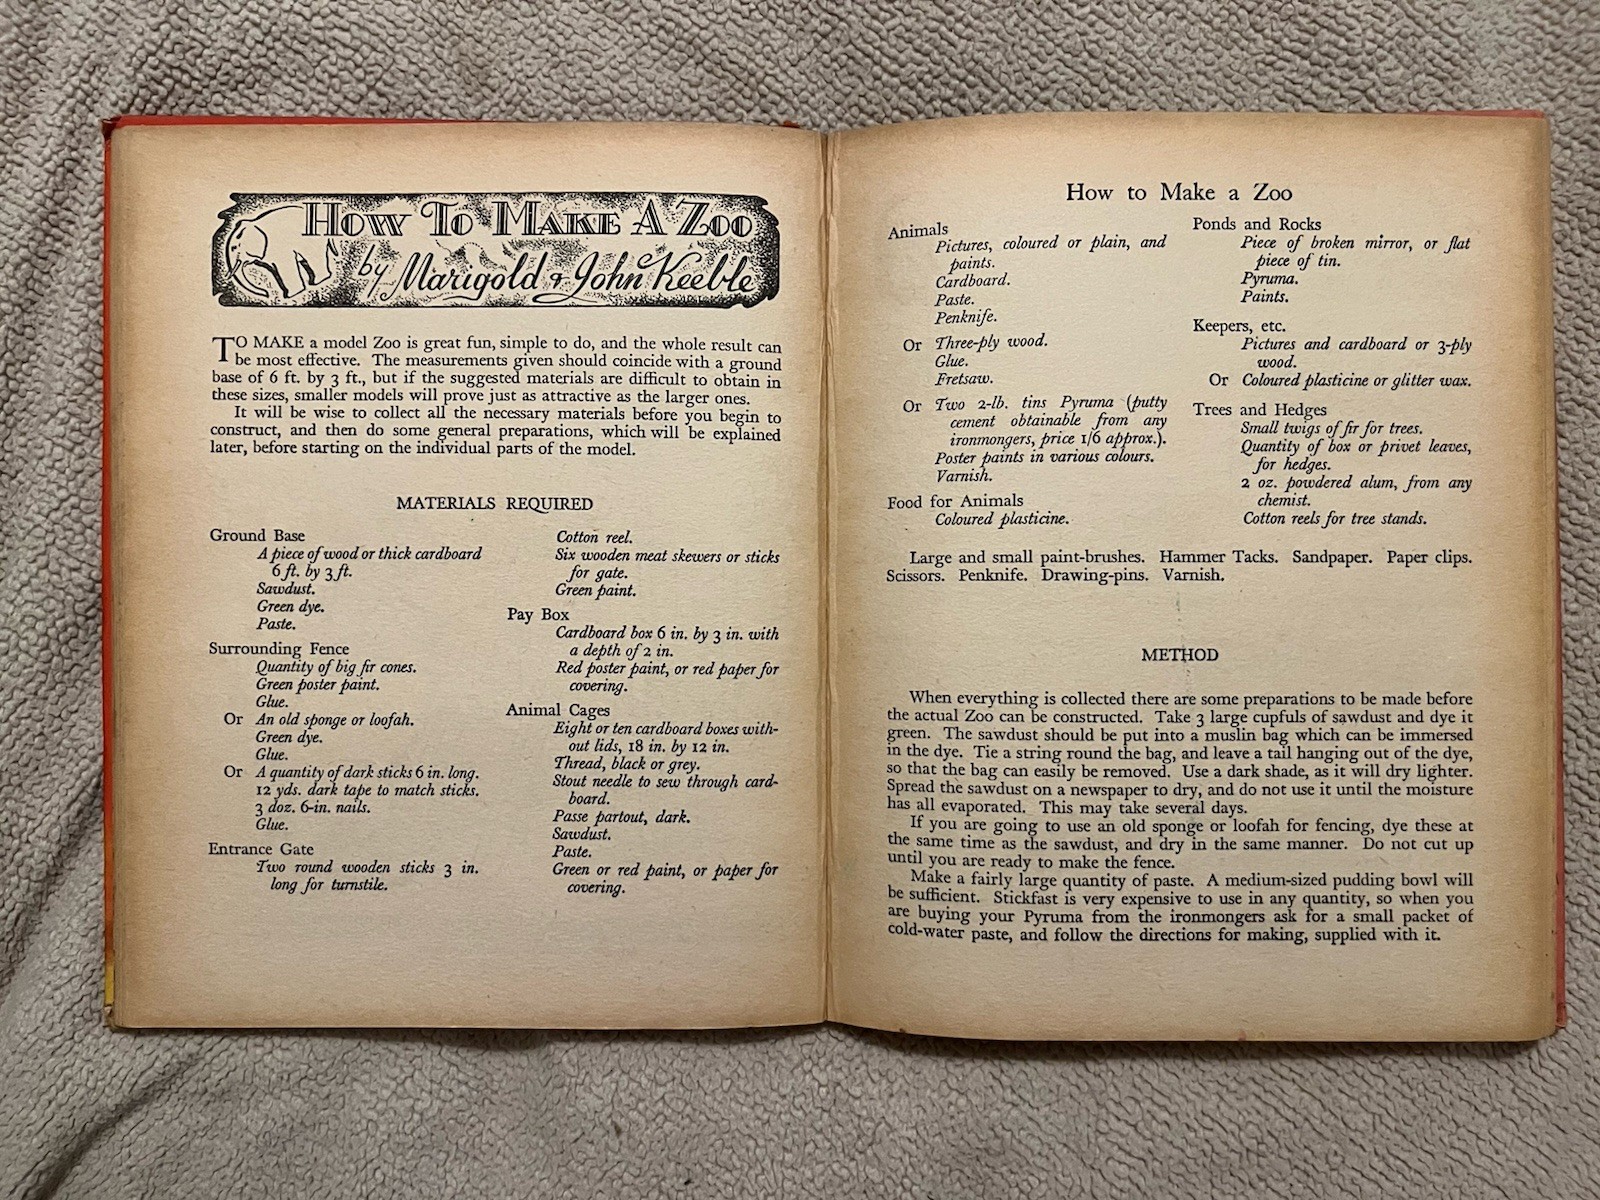 HOW TO MAKE A ZOO
by Marigold & John Keeble
TO MAKE a model Zoo is great fun, simple to do, and the whole result can
be most effective. The measurements given should coincide with a ground
base of 6 ft. by 3 ft., but if the suggested materials are difficult to obtain in
these sizes, smaller models will prove just as attractive as the larger ones.
It will be wise to collect all the necessary materials before you begin to
construct, and then do some general preparations, which will be explained
later, before starting on the individual parts of the model.
MATERIALS REQUIRED
Ground Base
A piece of wood or thick cardboard
6 ft. by 3 ft.
Sawdust.
Green dye.
Paste.
Surrounding Fence
Quantity of big fir cones.
Green poster paint.
Glue.
Or An old sponge or loofah.
Green dye.
Glue.
Or A quantity of dark sticks 6 in. long.
12 yds. dark tape to match sticks.
3 doz. 6-in. nails.
Glue.
Entrance Gate
Two round wooden sticks 3 in.
long for turnstile.
Cotton reel.
Six wooden meat skewers or sticks
for gate.
Green paint.
Pay Box
Cardboard box 6 in. by 3 in. with
a depth of 2 in.
Red poster paint, or red paper for
covering.
Animal Cages
Eight or ten cardboard boxes with-
out lids, 18 in. by 12 in.
Thread, black or grey.
Stout needle to sew through card-
board.
Passe partout, dark.
Sawdust.
Paste.
Green or red paint, or paper for
covering.
How to Make a Zoo
Animals
Pictures, coloured or plain, and
paints.
Cardboard.
Paste.
Penknife.
Or Three-ply wood.
Glue.
Fretsaw.
Or Two 2-lb. tins Pyruma (putty
cement obtainable from any
ironmongers, price 1/6 approx.).
Poster paints in various colours.
Varnish.
Food for Animals
Coloured plasticine.
Ponds and Rocks
Piece of broken mirror, or flat
piece of tin.
Pyruma.
Paints.
Keepers, etc.
Pictures and cardboard or 3-ply
wood.
Or Coloured plasticine or glitter wax.
Trees and Hedges
Small twigs of fir for trees.
Quantity of box or privet leaves,
for hedges.
2 oz. powdered alum, from any
chemist.
Cotton reels for tree stands.
Large and small paint-brushes. Hammer Tacks. Sandpaper. Paper clips.
Scissors. Penknife. Drawing-pins. Varnish.
METHOD
When everything is collected there are some preparations to be made before
the actual Zoo can be constructed. Take 3 large cupfuls of sawdust and dye it
green. The sawdust should be put into a muslin bag which can be immersed
in the dye. Tie a string round the bag, and leave a tail hanging out of the dye,
so that the bag can easily be removed. Use a dark shade, as it will dry lighter.
Spread the sawdust on a newspaper to dry, and do not use it until the moisture
has all evaporated. This may take several days.
If you are going to use an old sponge or loofah for fencing, dye these at
the same time as the sawdust, and dry in the same manner. Do not cut up
until you are ready to make the fence.
Make a fairly large quantity of paste. A medium-sized pudding bowl will
be sufficient. Stickfast is very expensive to use in any quantity, so when you
are buying your Pyruma from the ironmongers ask for a small packet of
cold-water paste, and follow the directions for making, supplied with it.